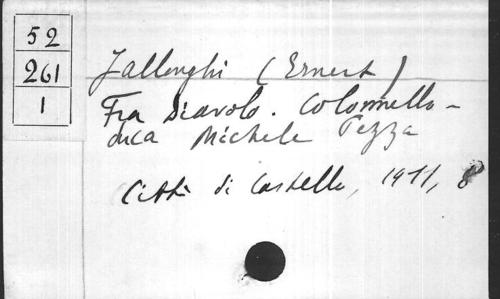 52
261
1
Jallonghi (Ernest)
Fra Diavolo. Colonnello-
duca Michele Pezza
Città di Castello, 1911, 8